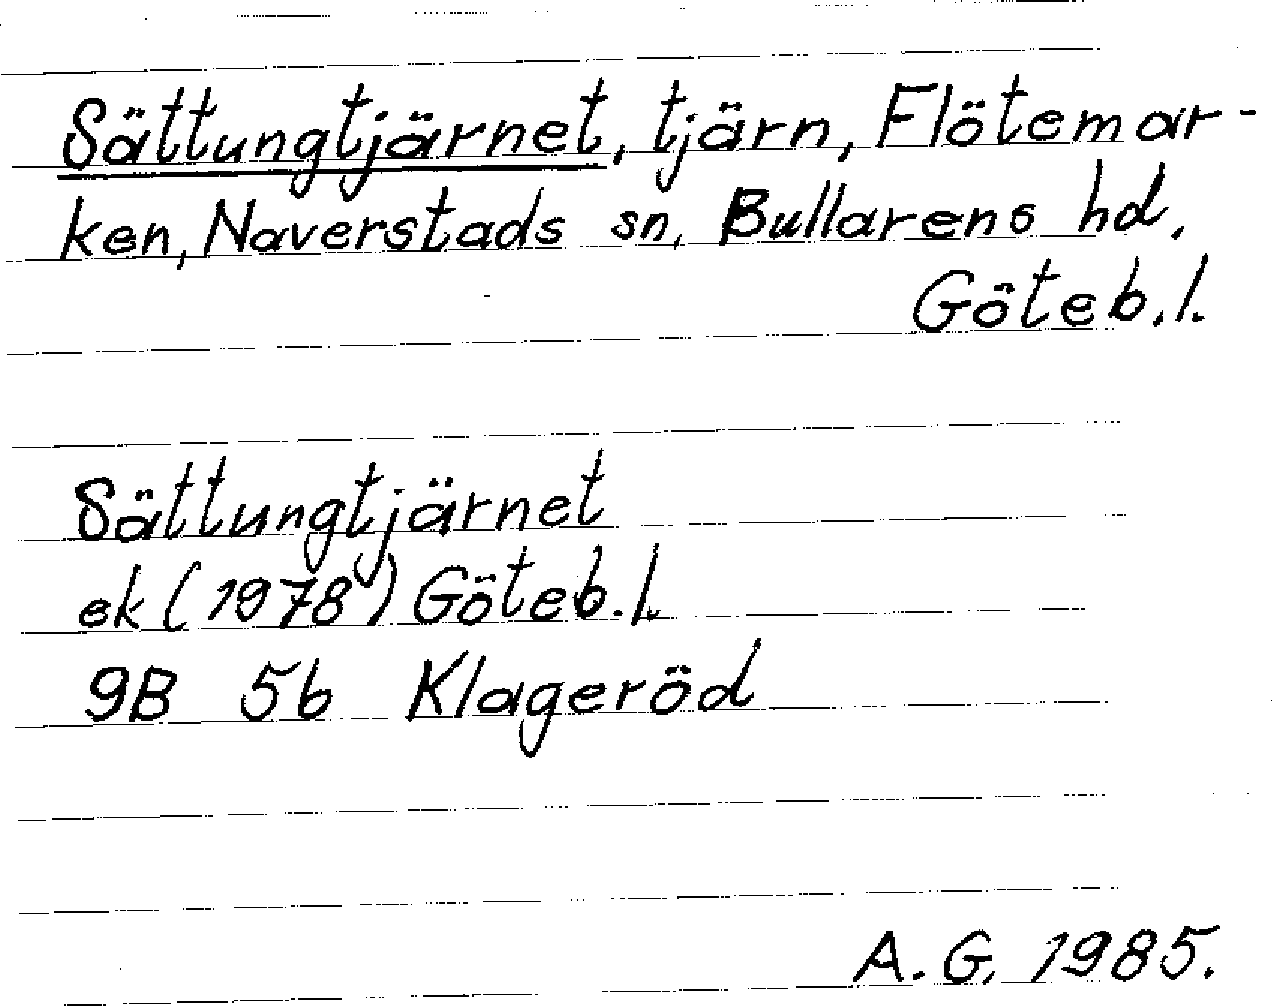 Sättungtjärnet, tjärn, Flötemar-
ken, Naverstads sn, Bullarens hd,
Göteb.l.
Sättungtjärnet
ek (1978) Göteb.l.
9B 5b Klageröd
A.G. 1985.